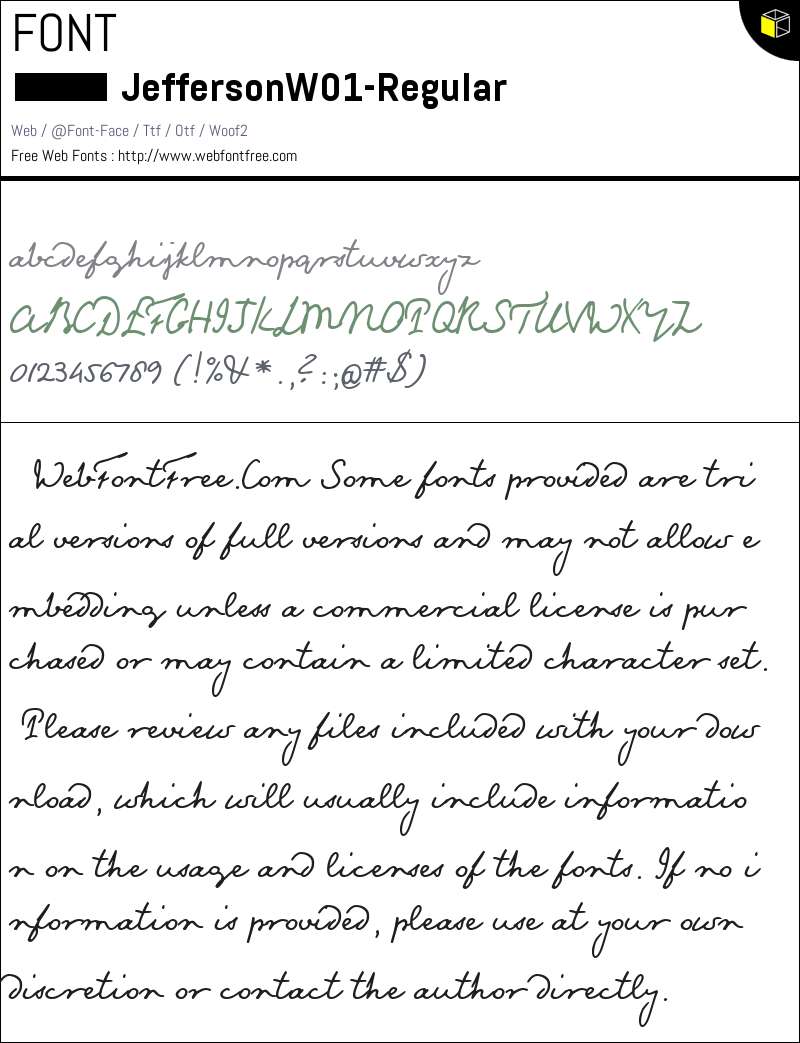 FONT
JeffersonW01-Regular
Web / @Font-Face / Ttf / Otf / Woof2
Free Web Fonts : http://www.webfontfree.com
abcdefghijklmnopqrstuvwxyz
ABCDEFGHIJKLMNOPQRSTUVWXYZ
0123456789 (!%&*.,?:;@#$)
WebFontFree.Com Some fonts provided are tri
al versions of full versions and may not allow e
mbedding unless a commercial license is pur
chased or may contain a limited character set.
Please review any files included with your dow
nload, which will usually include informatio
n on the usage and licenses of the fonts. If no i
nformation is provided, please use at your own
discretion or contact the author directly.